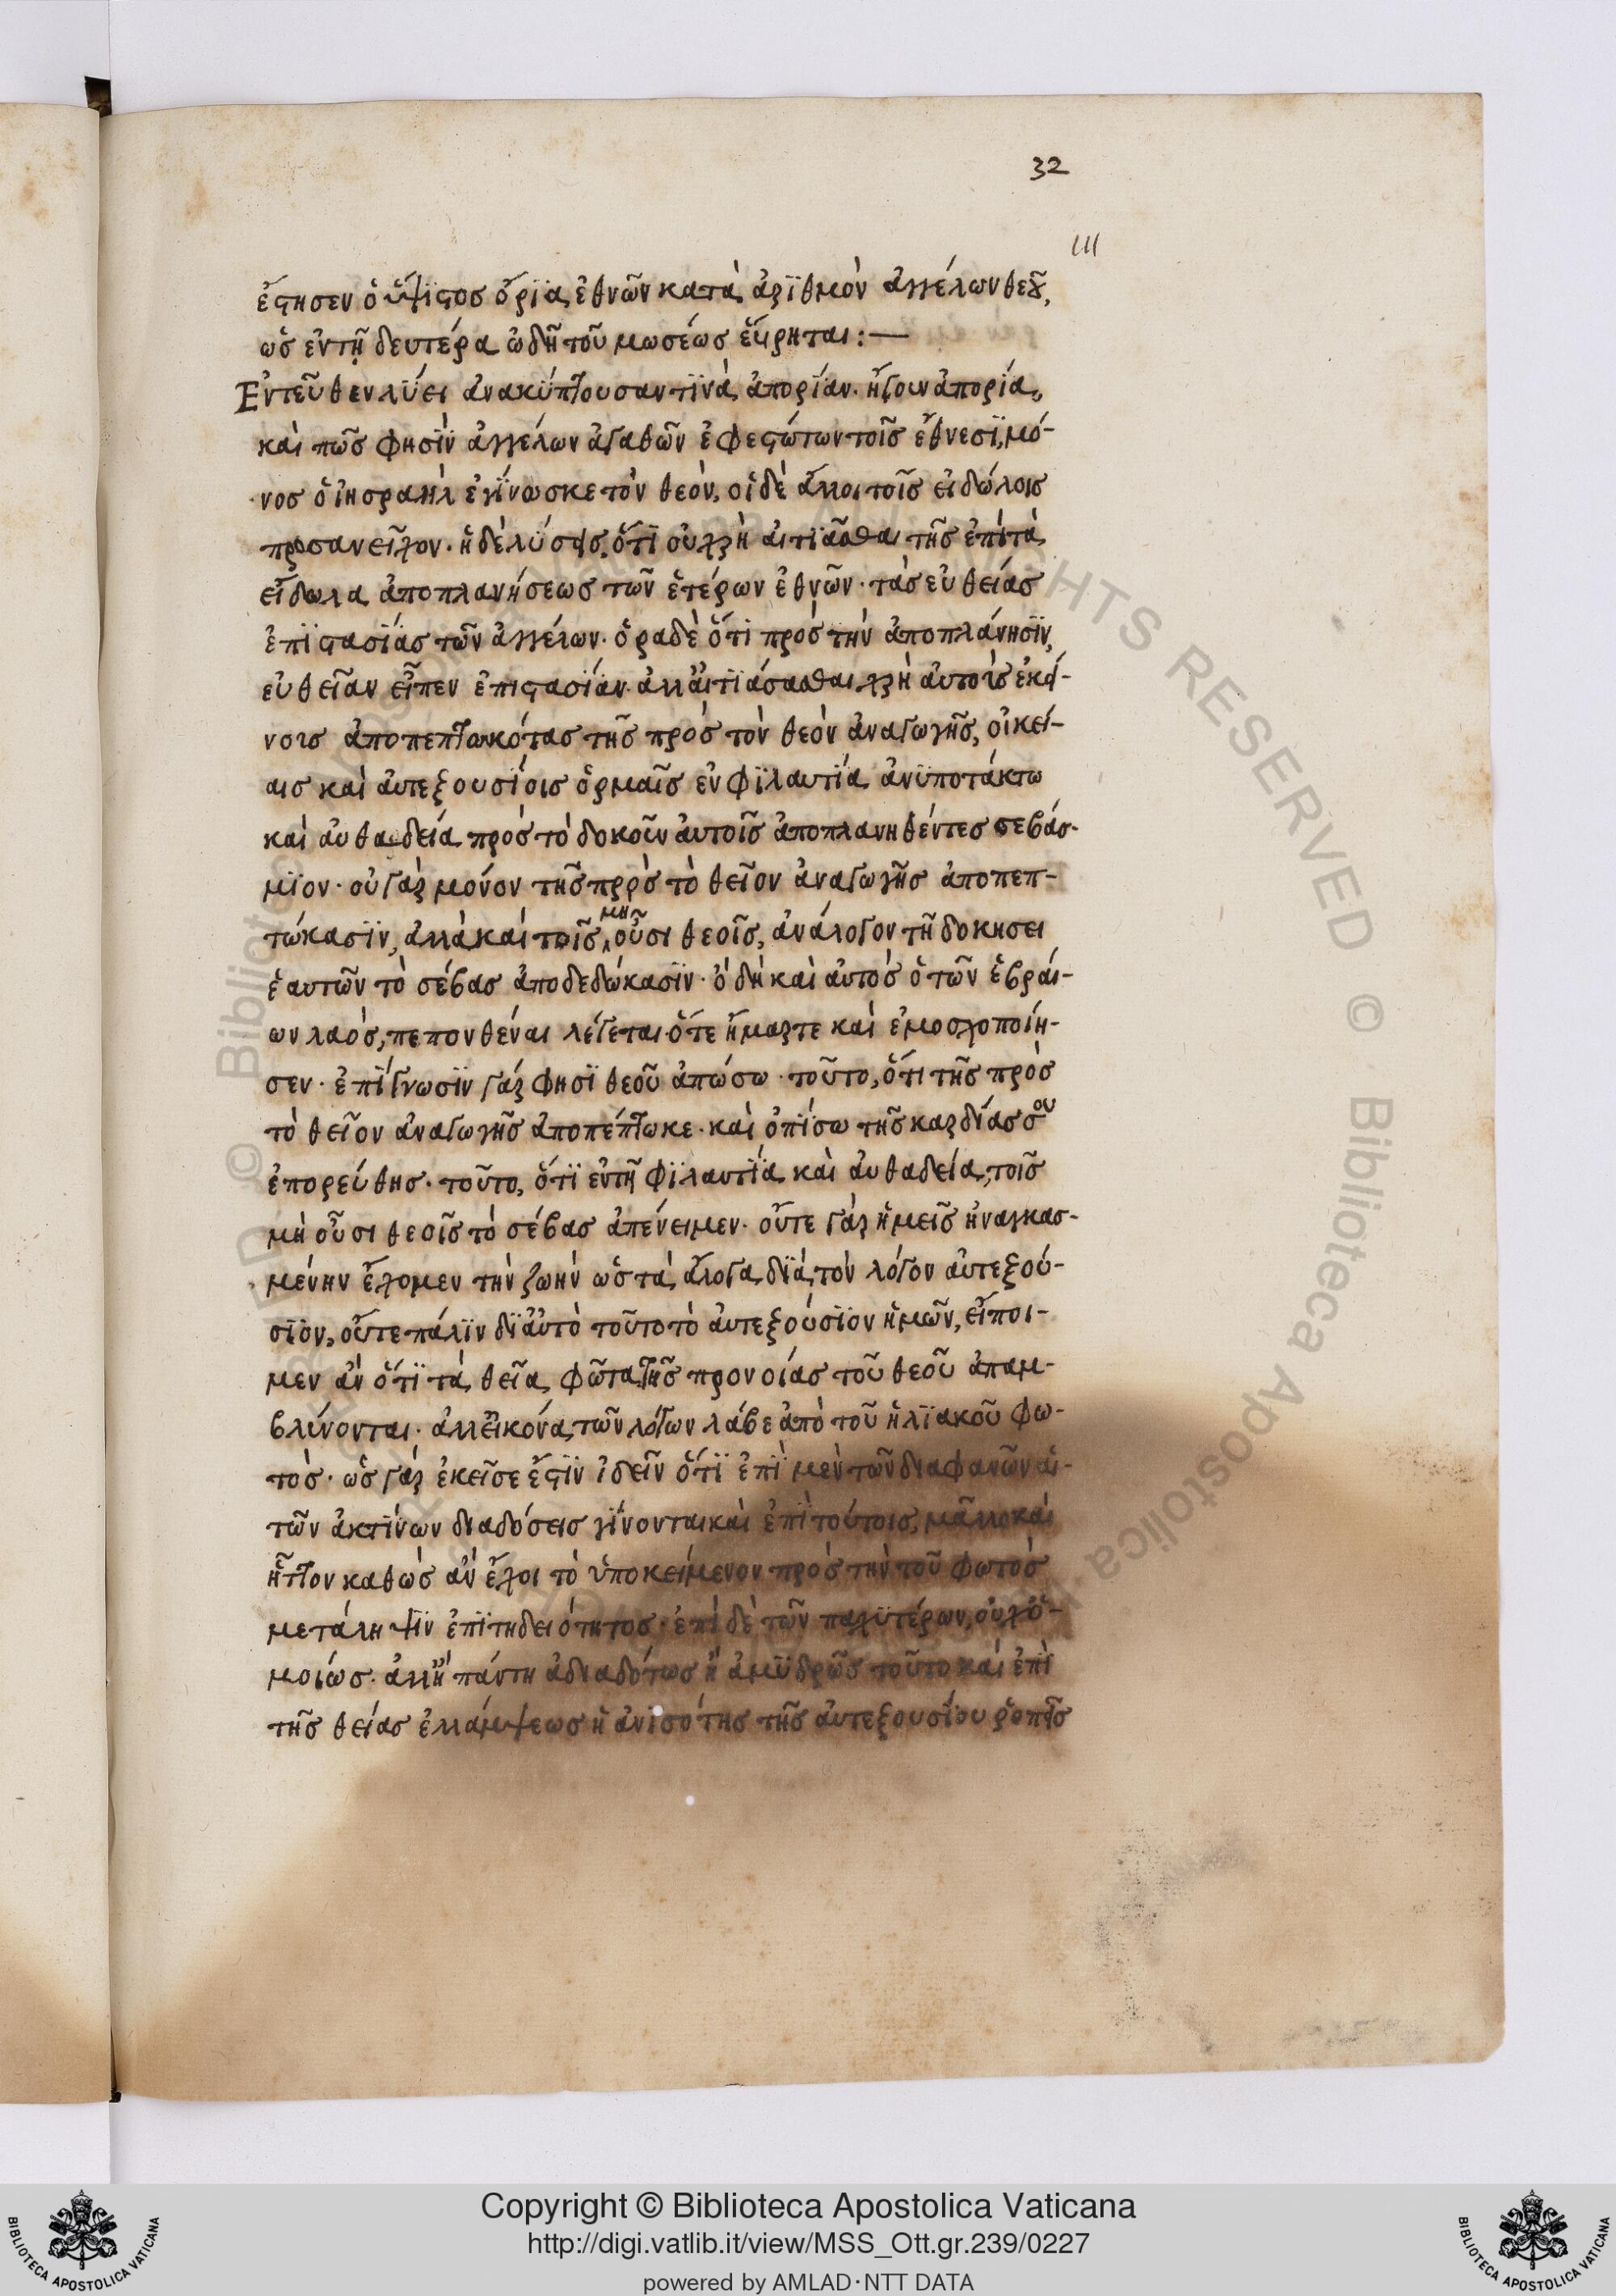 32
111
ἔστησεν ὁ ὕψϊστος ὅρϊα ἐθνῶν κατὰ ἀρϊθμὸν ἀγγέλων θεοῦ,
ὡς ἐν τῇ δευτέρα ὠδῆ τοῦ μωσέως ἔιρηται:—
Ἐντεῦθεν λΰει ἀνακΰπτουσαν τϊνὰ ἀπορίαν. ἤγουν ἀπορία,
καὶ πῶς φησϊν ἀγγέλων ἀγαθῶν ἐφεστώτων τοῖς ἔθνεσϊ, μό-
νος ὁ ἰησραὴλ ἐγΐνωσκε τὸν θεὸν, οἱ δὲ ἄλλοι τοῖς εἰδώλοις
προσανεῖχον. ἡ δὲ λΰσις, ὅτϊ οὐ χρὴ αἰτϊᾶσθαι τῆς ἐπὶ τὰ
εἴδωλα ἀποπλανήσεως τῶν ἑτέρων ἐθνῶν. τὰς εὐθείας
ἐπϊστασΐας τῶν ἀγγέλων. ὅρα δὲ ὅτϊ πρὸς τὴν ἀποπλάνησϊν,
εὐθεῖαν εἶπεν ἐπιστασίαν. ἀλλ' αἰτϊάσασθαι χρὴ αὐτοὺς ἐκεί-
νοις ἀποπεπτωκότας τῆς πρὸς τὸν θεὸν ἀναγωγῆς, οἰκεί-
αις καὶ ἀυτεξουσΐοις ὁρμαῖς ἐν φϊλαυτία ἀνϋποτάκτω
καὶ ἀυθαδεία πρὸς τὸ δοκοῦν ἀυτοῖς ἀποπλανηθέντες σεβάσ-
μϊον. οὐ γὰρ μόνον τῆς πρὸς τὸ θεῖον ἀναγωγῆς ἀποπεπ-
τώκασϊν, ἀλλὰ καὶ τοῖς μὴ οὖσι θεοῖς, ἀνάλογον τῆ δοκησει
ἑαυτῶν τὸ σέβας ἀποδεδώκασϊν. ὁ δὴ καὶ αὐτὸς ὁ τῶν ἑβραί-
ων λαός, πεπονθέναι λέγεται. ὅτε ἥμαρτε καὶ ἐμοσχοποίη-
σεν. ἐπΐγνωσϊν γάρ φησϊ θεοῦ ἀπώσω. τοῦτο, ὅτι τῆς πρὸς
τὸ θεῖον ἀναγωγῆς ἀποπέπτωκε. καὶ ὀπΐσω τῆς καρδίας σου
ἐπορεύθης. τοῦτο, ὅτϊ ἐν τῆ φϊλαυτΐα καὶ ἀυθαδεία, τοῖς
μὴ οὖσι θεοῖς τὸ σέβας ἀπένειμεν. οὔτε γὰρ ἡμεῖς ἠναγκασ-
μένην ἔχομεν τὴν ζωὴν ὡς τὰ ἄλογα διὰ τὸν λόγον ἀυτεξού-
σϊον, οὔτε πάλϊν δϊ' ἀυτὸ τοῦτο τὸ ἀυτεξούσϊον ἡμῶν, εἴποι-
μεν ἂν ὅτϊ τὰ θεῖα φῶτα τῆς προνοίας τοῦ θεοῦ ἀπαμ-
βλύνονται. ἀλλ' εἰκόνα τῶν λόγων λάβε ἀπὸ τοῦ ἡλϊακοῦ φω-
τός. ὡς γὰρ ἐκεῖσε ἔστϊν ἰδεῖν ὅτϊ ἐπϊ μὲν τῶν διαφανῶν αἱ-
τῶν ἀκτίνων διαδόσεις γΐνονται καὶ ἐπὶ τούτοις, μᾶλλον καὶ
ἧττον καθὼς ἂν ἔχοι τὸ ὑποκείμενον πρὸς τὴν τοῦ φωτὸς
μετάληψϊν ἐπϊτηδειότητος. ἐπὶ δὲ τῶν παχϋτέρων, οὐχ ὁ-
μοιως. ἀλλ' ἢ πάντη ἀδιαδότως ἢ ἀμϋδρῶς τοῦτο καὶ ἐπὶ
τῆς θείας ἐλλάμψεως ἡ ἀνισότης τῆς ἀυτεξουσΐου ῥοπῆς
© Biblioteca Apostolica Vaticana
Copyright © Biblioteca Apostolica Vaticana
http://digi.vatlib.it/view/MSS_Ott.gr.239/0227
powered by AMLAD·NTT DATA
BIBLIOTECA APOSTOLICA VATICANA
BIBLIOTECA APOSTOLICA VATICANA